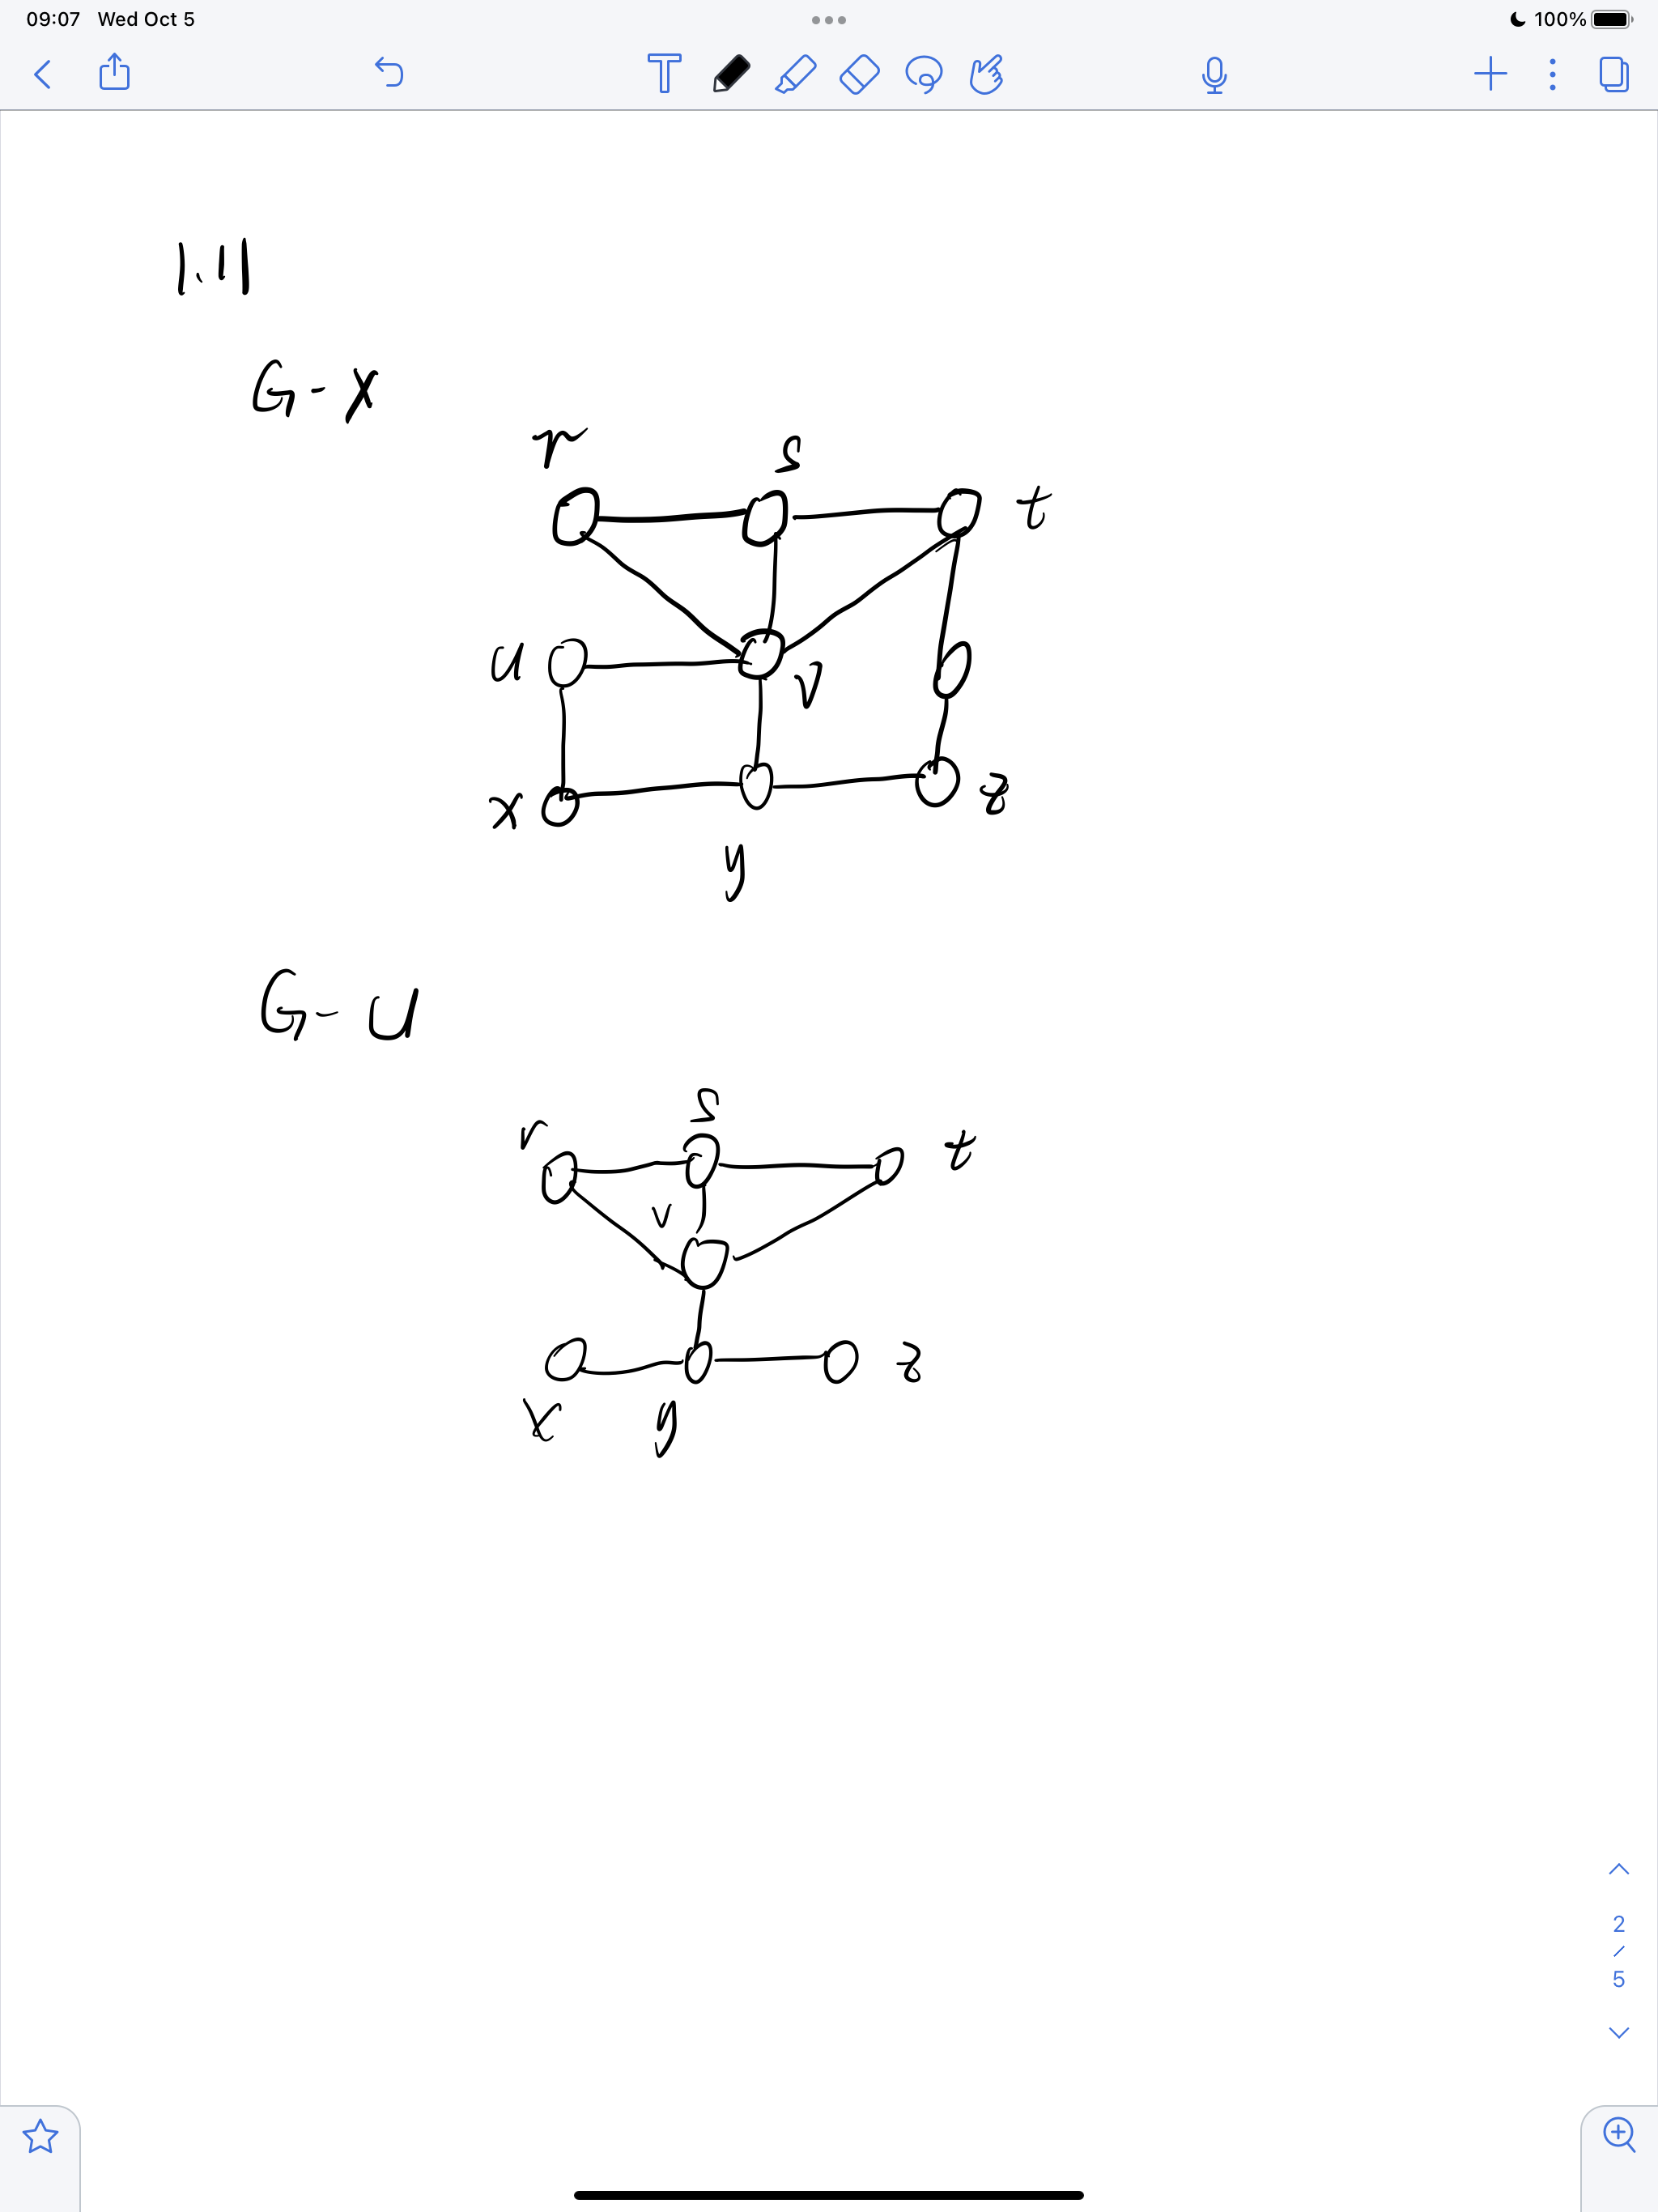 09:07 Wed Oct 5
100%
T
1.11
G - x
r s t
u v
x z
y
G - u
s
r t
v
z
x y
2
/
5